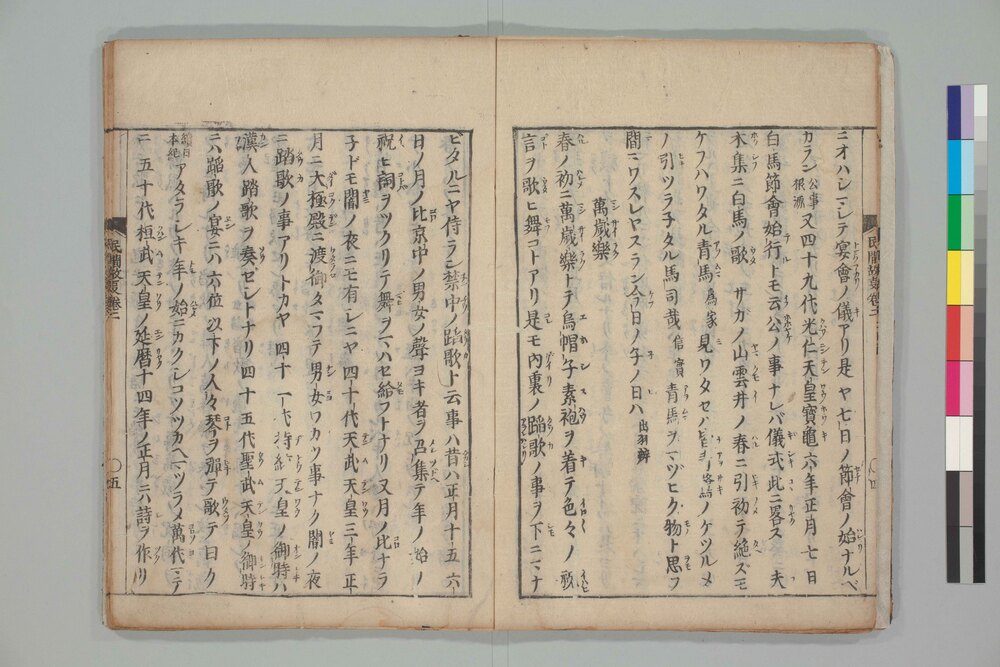 ニオハレマレテ宴會ノ儀アリ是ヤ七日ノ節會ノ始ナルベ
カラン公事根源又四十九代光仁天皇寳龜六年正月七日
白馬節會始行トモ云公ノ事ナレバ儀式此ニ畧ス夫
木集ニ白馬ノ歌 サガノ山雲井ノ春ニ引初テ絶ズモ
ケフハワタル青馬爲家見ワタセバ皆ノケツルメ
ノ引ツラ子タル馬司哉信實青馬ヲマヅヒク物ト思フ
間ニワスレヤスラン今日ノ子ノ日ハ出羽辨
萬歳樂
春ノ初ニ萬歳樂トテ烏帽子素袍ヲ着テ色々ノ祝
言ヲ歌ヒ舞コトアリ是モ内裏ノ蹈歌ノ事ヲ下ニマナ
ビタルニヤ侍ラン禁中ノ蹈歌ト云事ハ昔ハ正月十五六
日ノ月ノ比京中ノ男女ノ聲ヨキ者ヲ召集テ年ノ始ノ
祝ヒ詞ヲツクリテ舞ヲマハセ給フトナリ又月ノ比ナラ
子ドモ闇ノ夜ニモ有レニヤ四十代天武天皇三年正
月ニ大極殿ニ渡御タマフテ男女ワカツ事ナク闇ノ夜
ニ踏歌ノ事アリトカヤ四十一代持統天皇ノ御時ハ
漢人踏歌ヲ奏ゼシトナリ四十五代聖武天皇ノ御時
ニハ蹈歌ノ宴ニハ六位以下ノ人々琴ヲ彈テ歌テ曰ク
續日本紀アタラレキ年ノ始ニカクレコソツカヘマツラメ萬代マテ
ニ五十代桓武天皇ノ延暦十四年ノ正月ニハ詩ヲ作リ
民間故事巻二
〇五